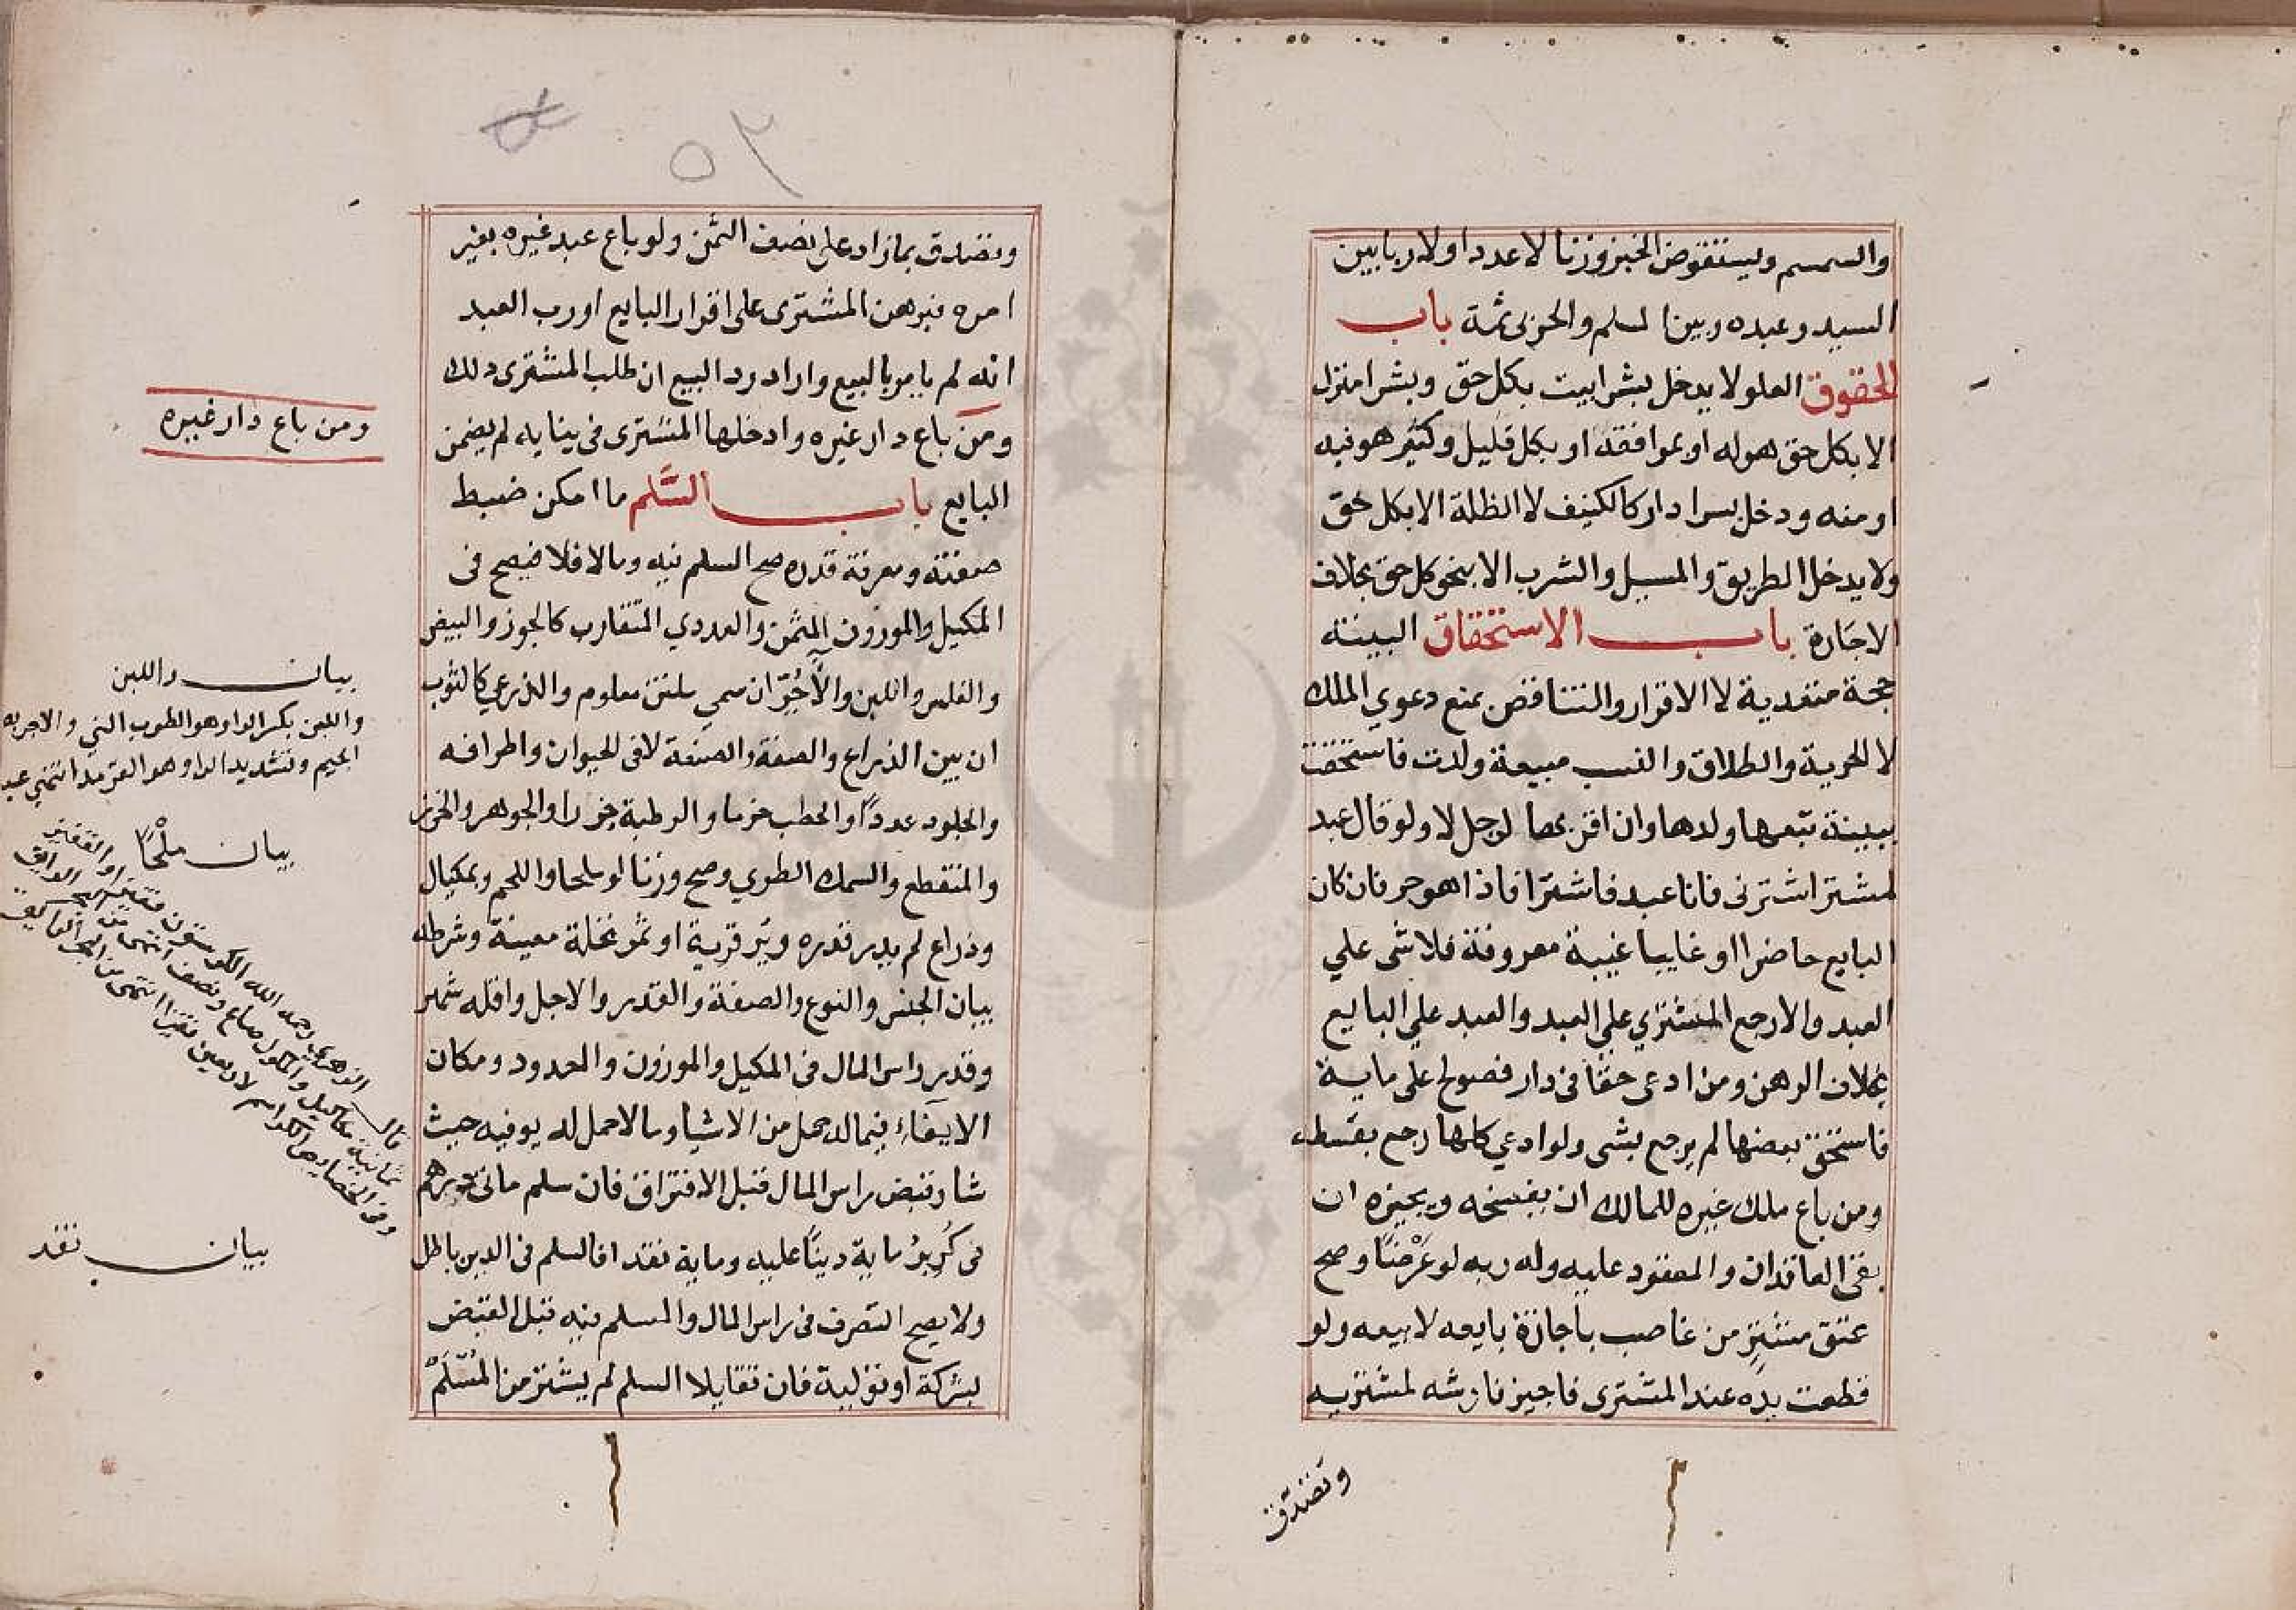 والسمسم ويستقرض الخبز وزنا لا عددا ولا ربا بين
السيد وعبده وبين المسلم والحربى ثمة باب
الحقوق العلو لا يدخل بشرا بيت بكل حق وبشرا منزل
الا بكل حق هوله او بمرافقه او بكل قليل وكثير هو فيه
او منه ودخل بسرا دار كالكنيف لا الظلة الا بكل حق
ولا يدخل الطريق والمسيل والشرب الا بنحو كل حق بخلاف
الاجارة باب الاستحقاق البينة
حجة متعدية لا الاقرار والتناقض يمنع دعوي الملك
لا الحرية والطلاق والنسب مبيعة ولدت فاستحقت
ببينة تبعها ولدها وان اقر بها لرجل لا ولو قال عبد
لمشتر اشترنى فانا عبد فاشترا فاذا هو حر فان كان
البايع حاضرا او غايبا غيبة معروفة فلا شى علي
العبد والا رجع المشتري علي العبد والعبد علي البايع
بخلاف الرهن ومن ادعى حقا فى دار فصولح على ماية
فاستحق بعضها لم يرجع بشى ولو ادعي كلها رجع بقسطه
ومن باع ملك غيره للمالك ان يفسخه ويجيزه ان
بقى العاقدان والمعقود عليه وله وبه لو عَرْضًا وصح
عتق مشترٍ من غاصب باجازة بايعه لا بيعه ولو
قطعت يده عند المشترى فاجيز فارشه لمشتريه
وتصدق
٥٢
وتصدق بما زاد على نصف الثمن ولو باع عبد غيره بغير
امره فبرهن المشترى على اقرار البايع او رب العبد
انه لم يامر بالبيع واراد رد البيع ان طلب المشترى ذلك
ومن باع دار غيره وادخلها المشترى فى بنايه لم يضمن
البايع باب السَّلم ما امكن ضبط
صفته ومعرفة قدره صح السلم فيه وما لا فلا فيصح فى
المكيل والموزون المثمن والعددي المتقارب كالجوز والبيض
والفلس واللبن والآجُرّ ان سمي ملبن معلوم والذرعي كالثوب
ان بين الذراع والصفة والصنعة لا فى الحيوان واطرافه
والجلود عددًا والحطب حزما والرطبة جزرا والجوهر والخرز
والمنقطع والسمك الطري وصح وزنا لو ملحا واللحم وبمكيال
وذراع لم يدر قدره وبُر قرية او ثمر نخلة معينة وشرطه
بيان الجنس والنوع والصفة والقدر والاجل واقله شهر
وقدر راس المال فى المكيل والموزون والمعدود ومكان
الايفاء فيما له حمل من الاشيا وما لا حمل له يوفيه حيث
شا وقبض راس المال قبل الافتراق فان سلم مائى درهم
فى كُرِ بُرٍ ماية دينًا عليه وماية نقدا فالسلم فى الدين باطل
ولا يصح التصرف فى راس المال والمسلم فيه قبل القبض
بشركة او تولية فان تقايلا السلم لم يشتر من المُسْلَم
ومن باع دار غيره
بيان واللبن
واللبن بكسر الباء وهو الطوب الني والاجر بضم
الجيم وتشديد الراء وهو القرميد انتهي
بيان ملْحًا
قال الزهري رحمه الله الكر ستون قفيزا والقفيز
ثمانية مكاكيك والمكوك صاع ونصف انتهى من البحر الرايق
بيان نقد